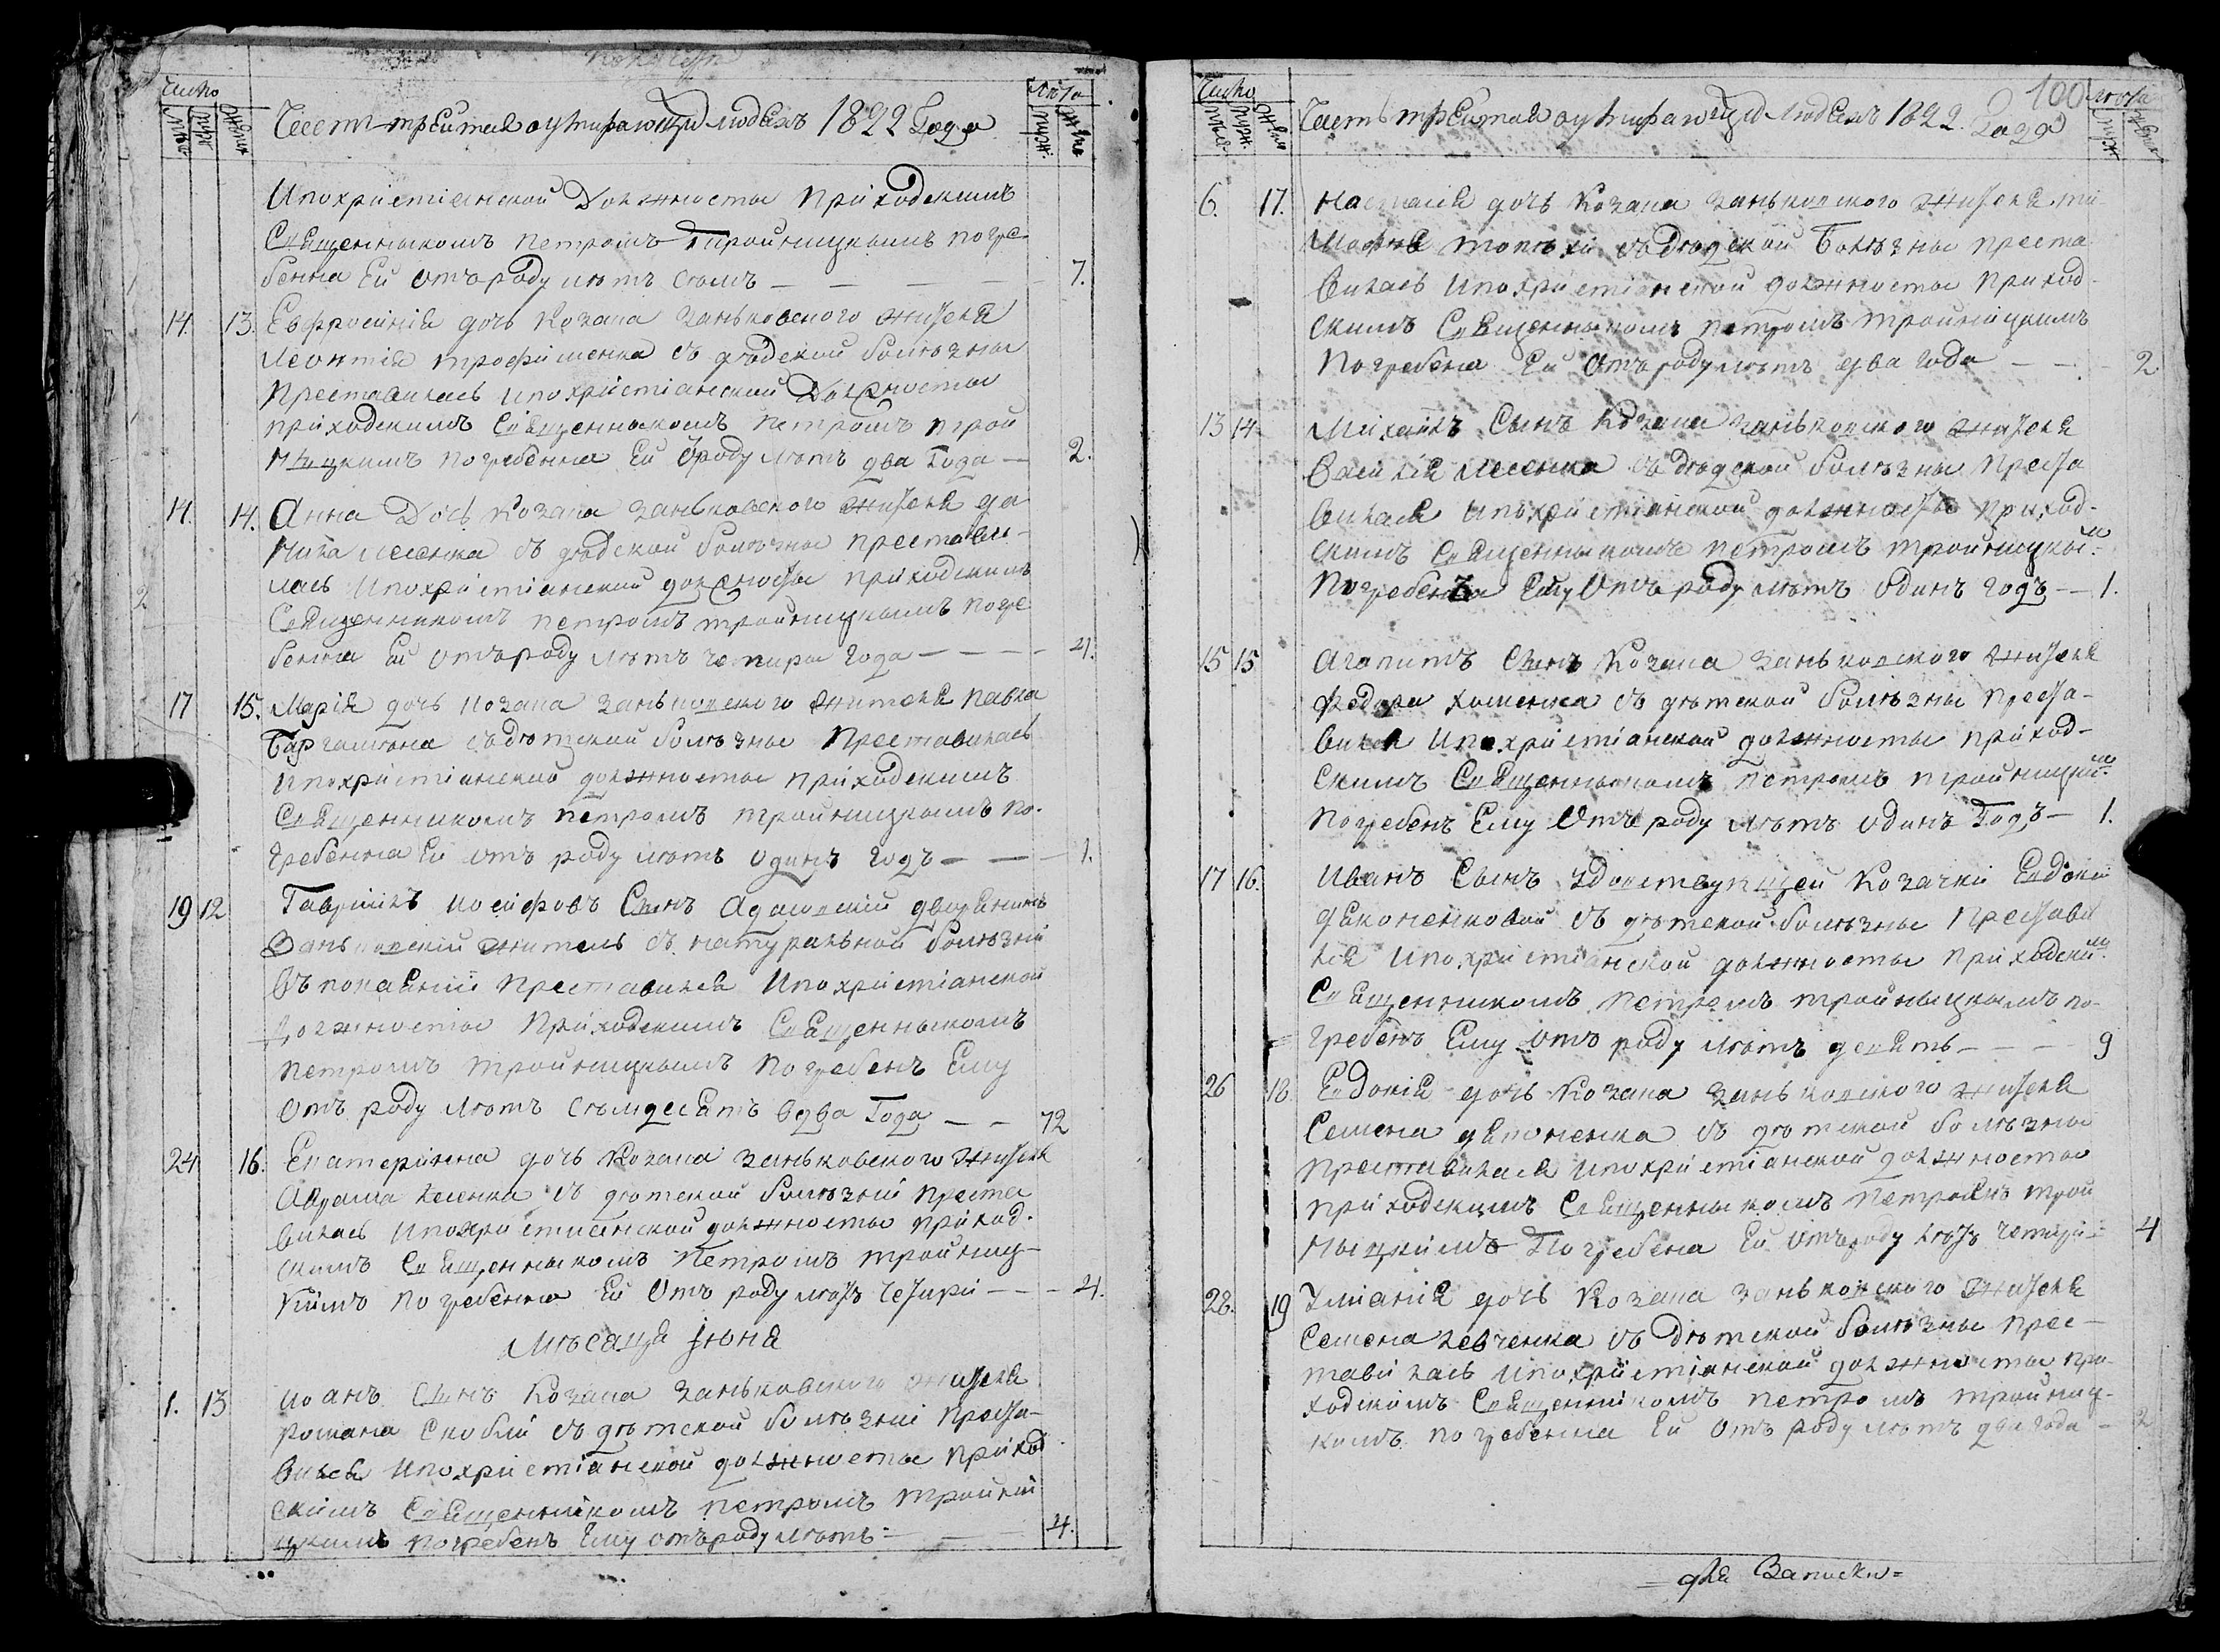 Число
Лѣта
Часть третая о умирающих людехъ 1822 Года
И по христіянской Должносты приходскимъ
Священныкомъ Петромъ Тройницкимъ погре-
бенна Ей отъ роду лѣтъ семъ — 7.
14. 13. Евфросинія дочь Козака Заньковского жителя
Леонтія Трофименка съ дѣдской болѣзны
Преставилась и по христіянской Должносты
приходскимъ Священныкомъ Петромъ Трой
ницкимъ погребенна Ей ѿ роду лѣтъ два Года — 2.
14. 14. Анна Дочь Козака Заньковского жителя да
нила лесенка съ дѣдской болѣзны престави-
лась И по христіянской должносты приходскимъ
Священникомъ Петромъ Тройницкимъ погре
бенна Ей отъ роду лѣтъ четыри года — 4.
17 15. Марія дочь Козака Заньковского жителя Павла
съ дѣтской болѣзны Преставилась
И по христіянской должносты приходскимъ
Священникомъ Петромъ Тройницкимъ по-
гребенна Ей отъ роду лѣтъ одинъ годъ — 1.
19 12 Гавріилъ Иосифовъ Сынъ дворянинъ
Заньковскій житель съ натуральной болѣзни
въ покаяніи Преставился И по христіянской
Должносты Приходскимъ Священныкомъ
Петромъ Тройницкимъ Погребенъ Ему
Отъ роду лѣтъ семдесятъ два Года — 72
24 16. Екатеринна дочь Козака Заньковского жителя
съ дѣтской болѣзни преста
вилась И по християнской должносты приход-
скимъ Священныкомъ Петромъ Тройниц-
кимъ погребенна Ей Отъ роду лѣтъ Четыри — 4.
Мѣсаца Іюня
1. 13 Иоанъ Сынъ Козака Заньковского жителя
Романа Скобки съ дѣтской болѣзни Преста-
вился И по христіянской должносты приход
скимъ Священникомъ Петромъ Тройни
цкимъ погребенъ Ему отъ роду лѣтъ — 4.
100
Число
Лѣта
Часть третая о умирающих Людехъ 1822. Года
6. 17. Настасія дочь Козака Заньковского жителя
съ дѣдской Болѣзны преста
вилась И по христіянской должносты приход-
скимъ Священныкомъ Петромъ Тройницкимъ
Погребена Ей Отъ роду лѣтъ два года — 2
13 14. Михаилъ Сынъ Козака Заньковского жителя
Василія лесенка съ дѣдской болѣзны Преста
вился И по христіянской должносты приход-
скимъ Священныкомъ Петромъ Тройницкым
Погребенъ Ему Отъ роду лѣтъ одинъ годъ — 1.
15 15. Агапитъ Сынъ Козака Заньковского жителя
Федора Хоменка съ дѣтской болѣзны Преста-
вился И по христіянской должносты приход-
скимъ Священныкомъ Петромъ Тройницким
Погребенъ Ему Отъ роду лѣтъ одинъ Годъ — 1.
17 16. Иванъ Сынъ вдовствующей Козачки Евдокіи
Дяконенковой съ дѣтской болѣзны Престави
лся И по христіянской должносты приходским
Священникомъ Петромъ Тройныцкимъ по-
гребенъ Ему отъ роду лѣтъ девять — 9
26 18. Евдокія дочь Козака Заньковского жителя
Семена съ дѣтской болѣзны
Преставилася И по христіянской должносты
приходскимъ Священныкомъ Петромъ Трой
ныцкимъ Погребена Ей Отъ роду лѣтъ четыри — 4
28. 19 дочь Козака Заньковского жителя
Семена левченка съ дѣтской болѣзны прес-
тавилась И по христіянской должносты при-
ходскомъ Священникомъ Петромъ Тройниц-
кимъ погребенна Ей Отъ роду лѣтъ два года — 2
= для Записки =